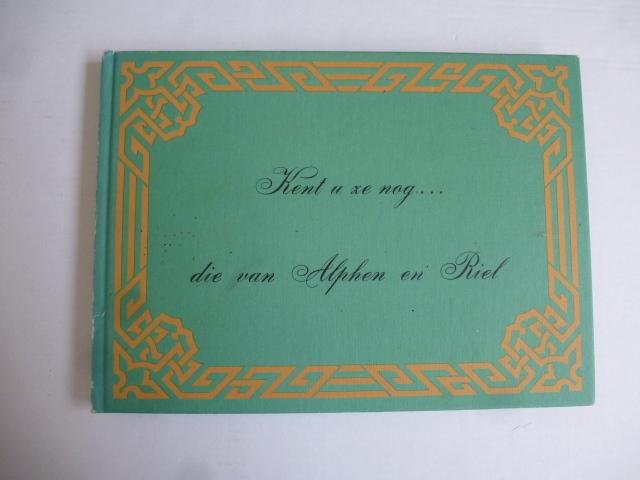 Kent u ze nog....
die van Alphen en Riel